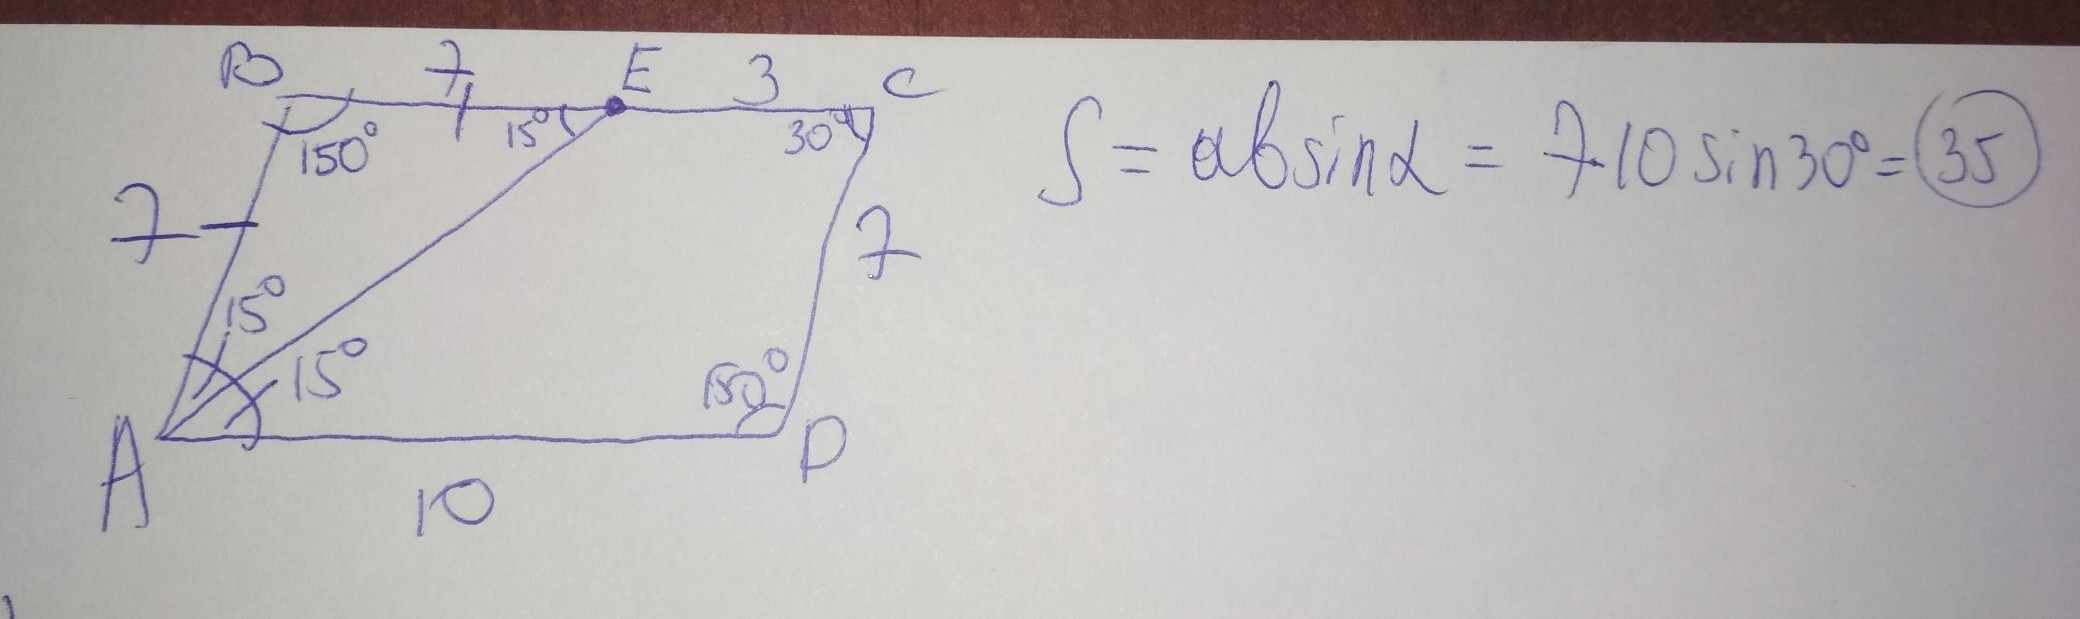 B 7 E 3 C
150° 15° 30°
S = ab sin α = 7·10 sin 30° = 35
7 7
15°
15° 150°
A D
10